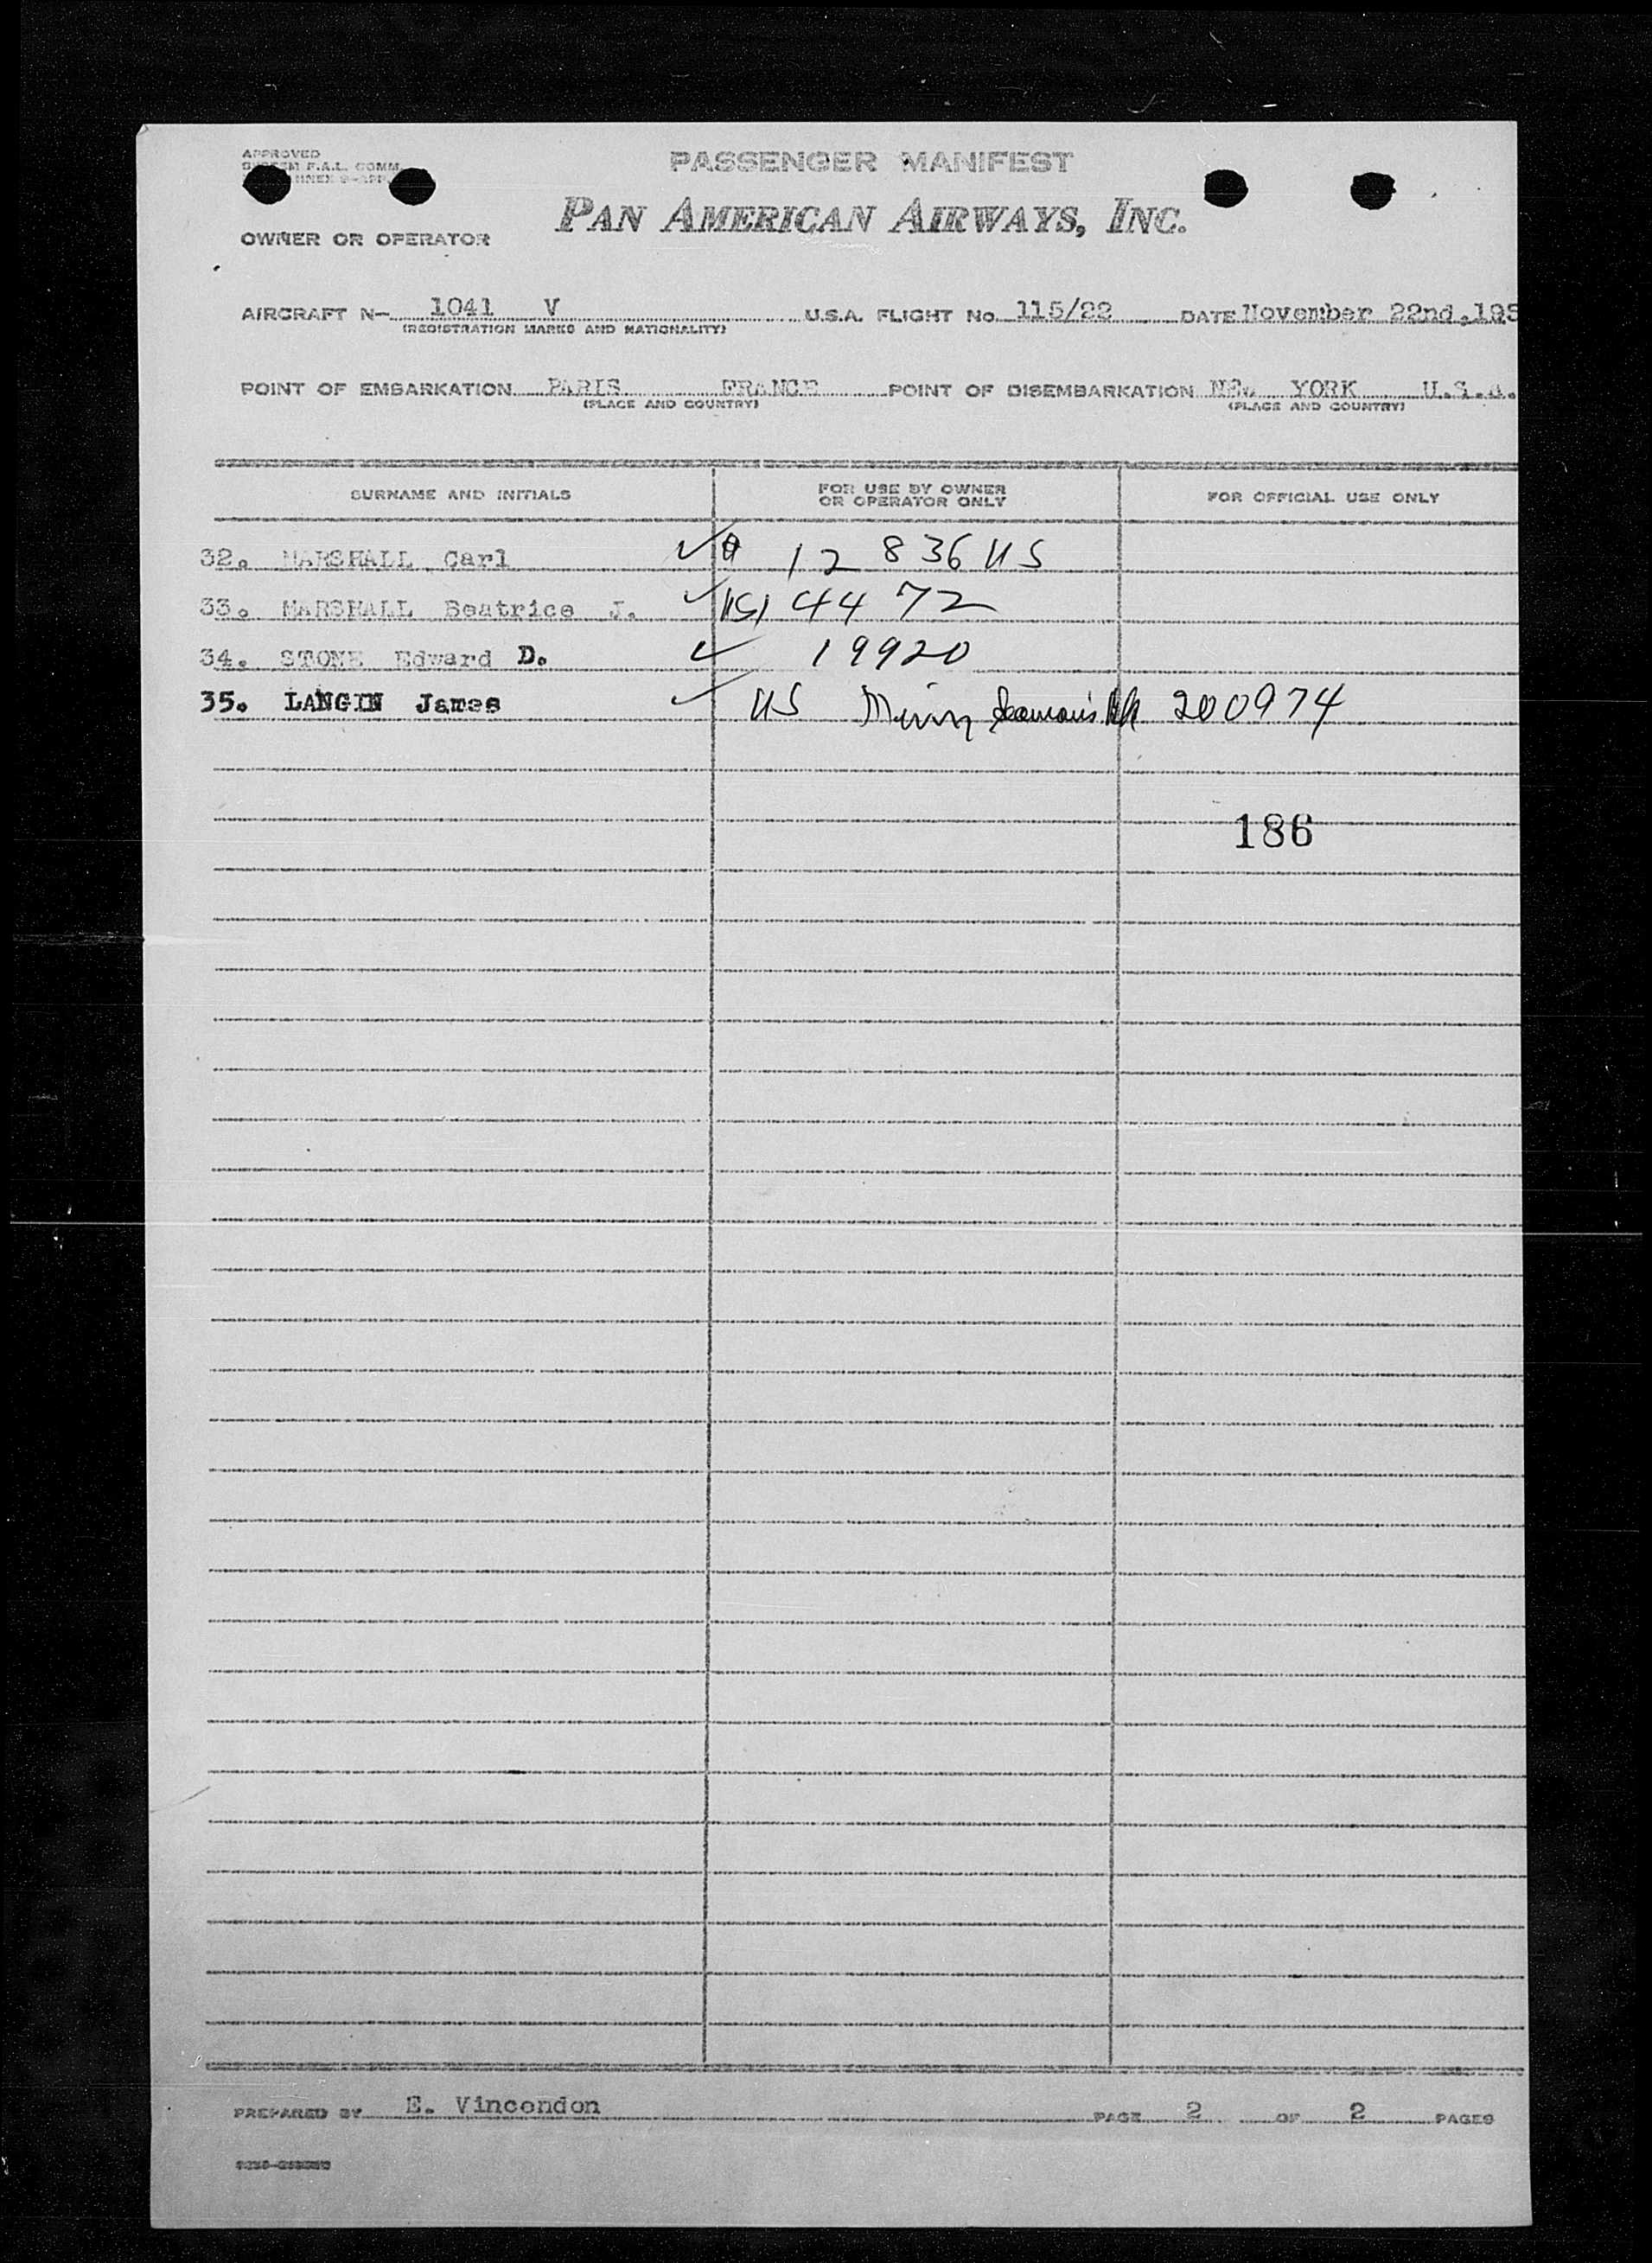 APPROVED
SYSTEM F.A.L. COMM.
PASSENGER MANIFEST
PAN AMERICAN AIRWAYS, INC.
OWNER OR OPERATOR
AIRCRAFT N- 1041 V U.S.A. FLIGHT No. 115/22 DATE November 22nd,195
(REGISTRATION MARKS AND NATIONALITY)
POINT OF EMBARKATION PARIS FRANCE POINT OF DISEMBARKATION NEW YORK U.S.A.
(PLACE AND COUNTRY) (PLACE AND COUNTRY)
SURNAME AND INITIALS FOR USE BY OWNER OR OPERATOR ONLY FOR OFFICIAL USE ONLY
32. MARSHALL Carl 12 836 US
33. MARSHALL Beatrice J. 44 72
34. STONE Edward D. 19920
35. LANGIN James US Seaman's 200974
186
PREPARED BY E. Vincendon PAGE 2 OF 2 PAGES